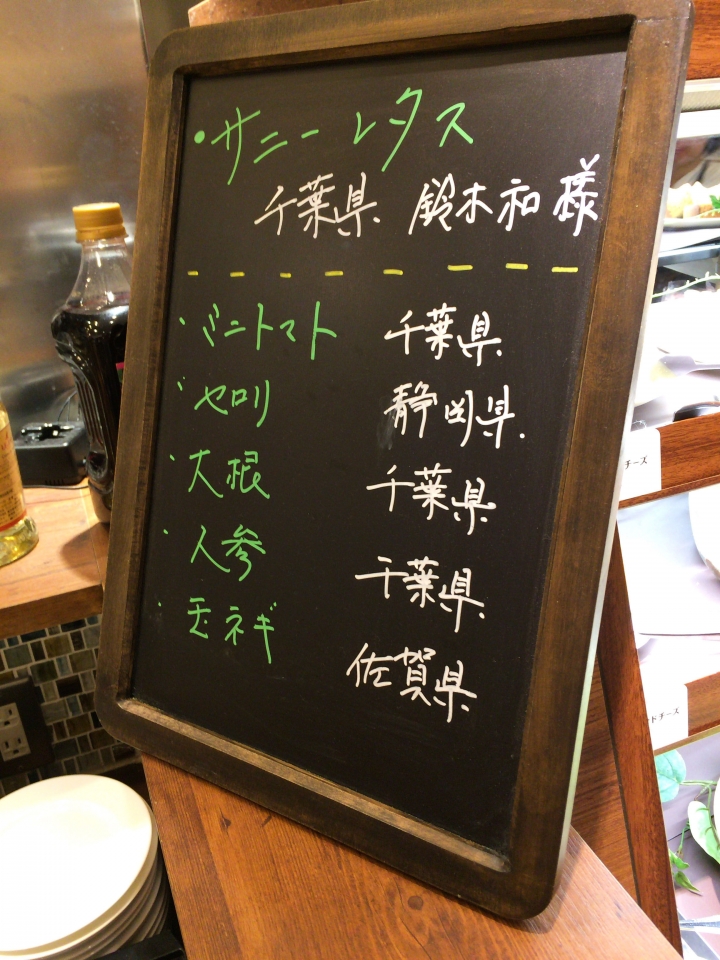 ・サニーレタス
千葉県 鈴木和様
・ミニトマト 千葉県
・セロリ 静岡県
・大根 千葉県
・人参 千葉県
・玉ネギ 佐賀県
チーズ
ドチーズ